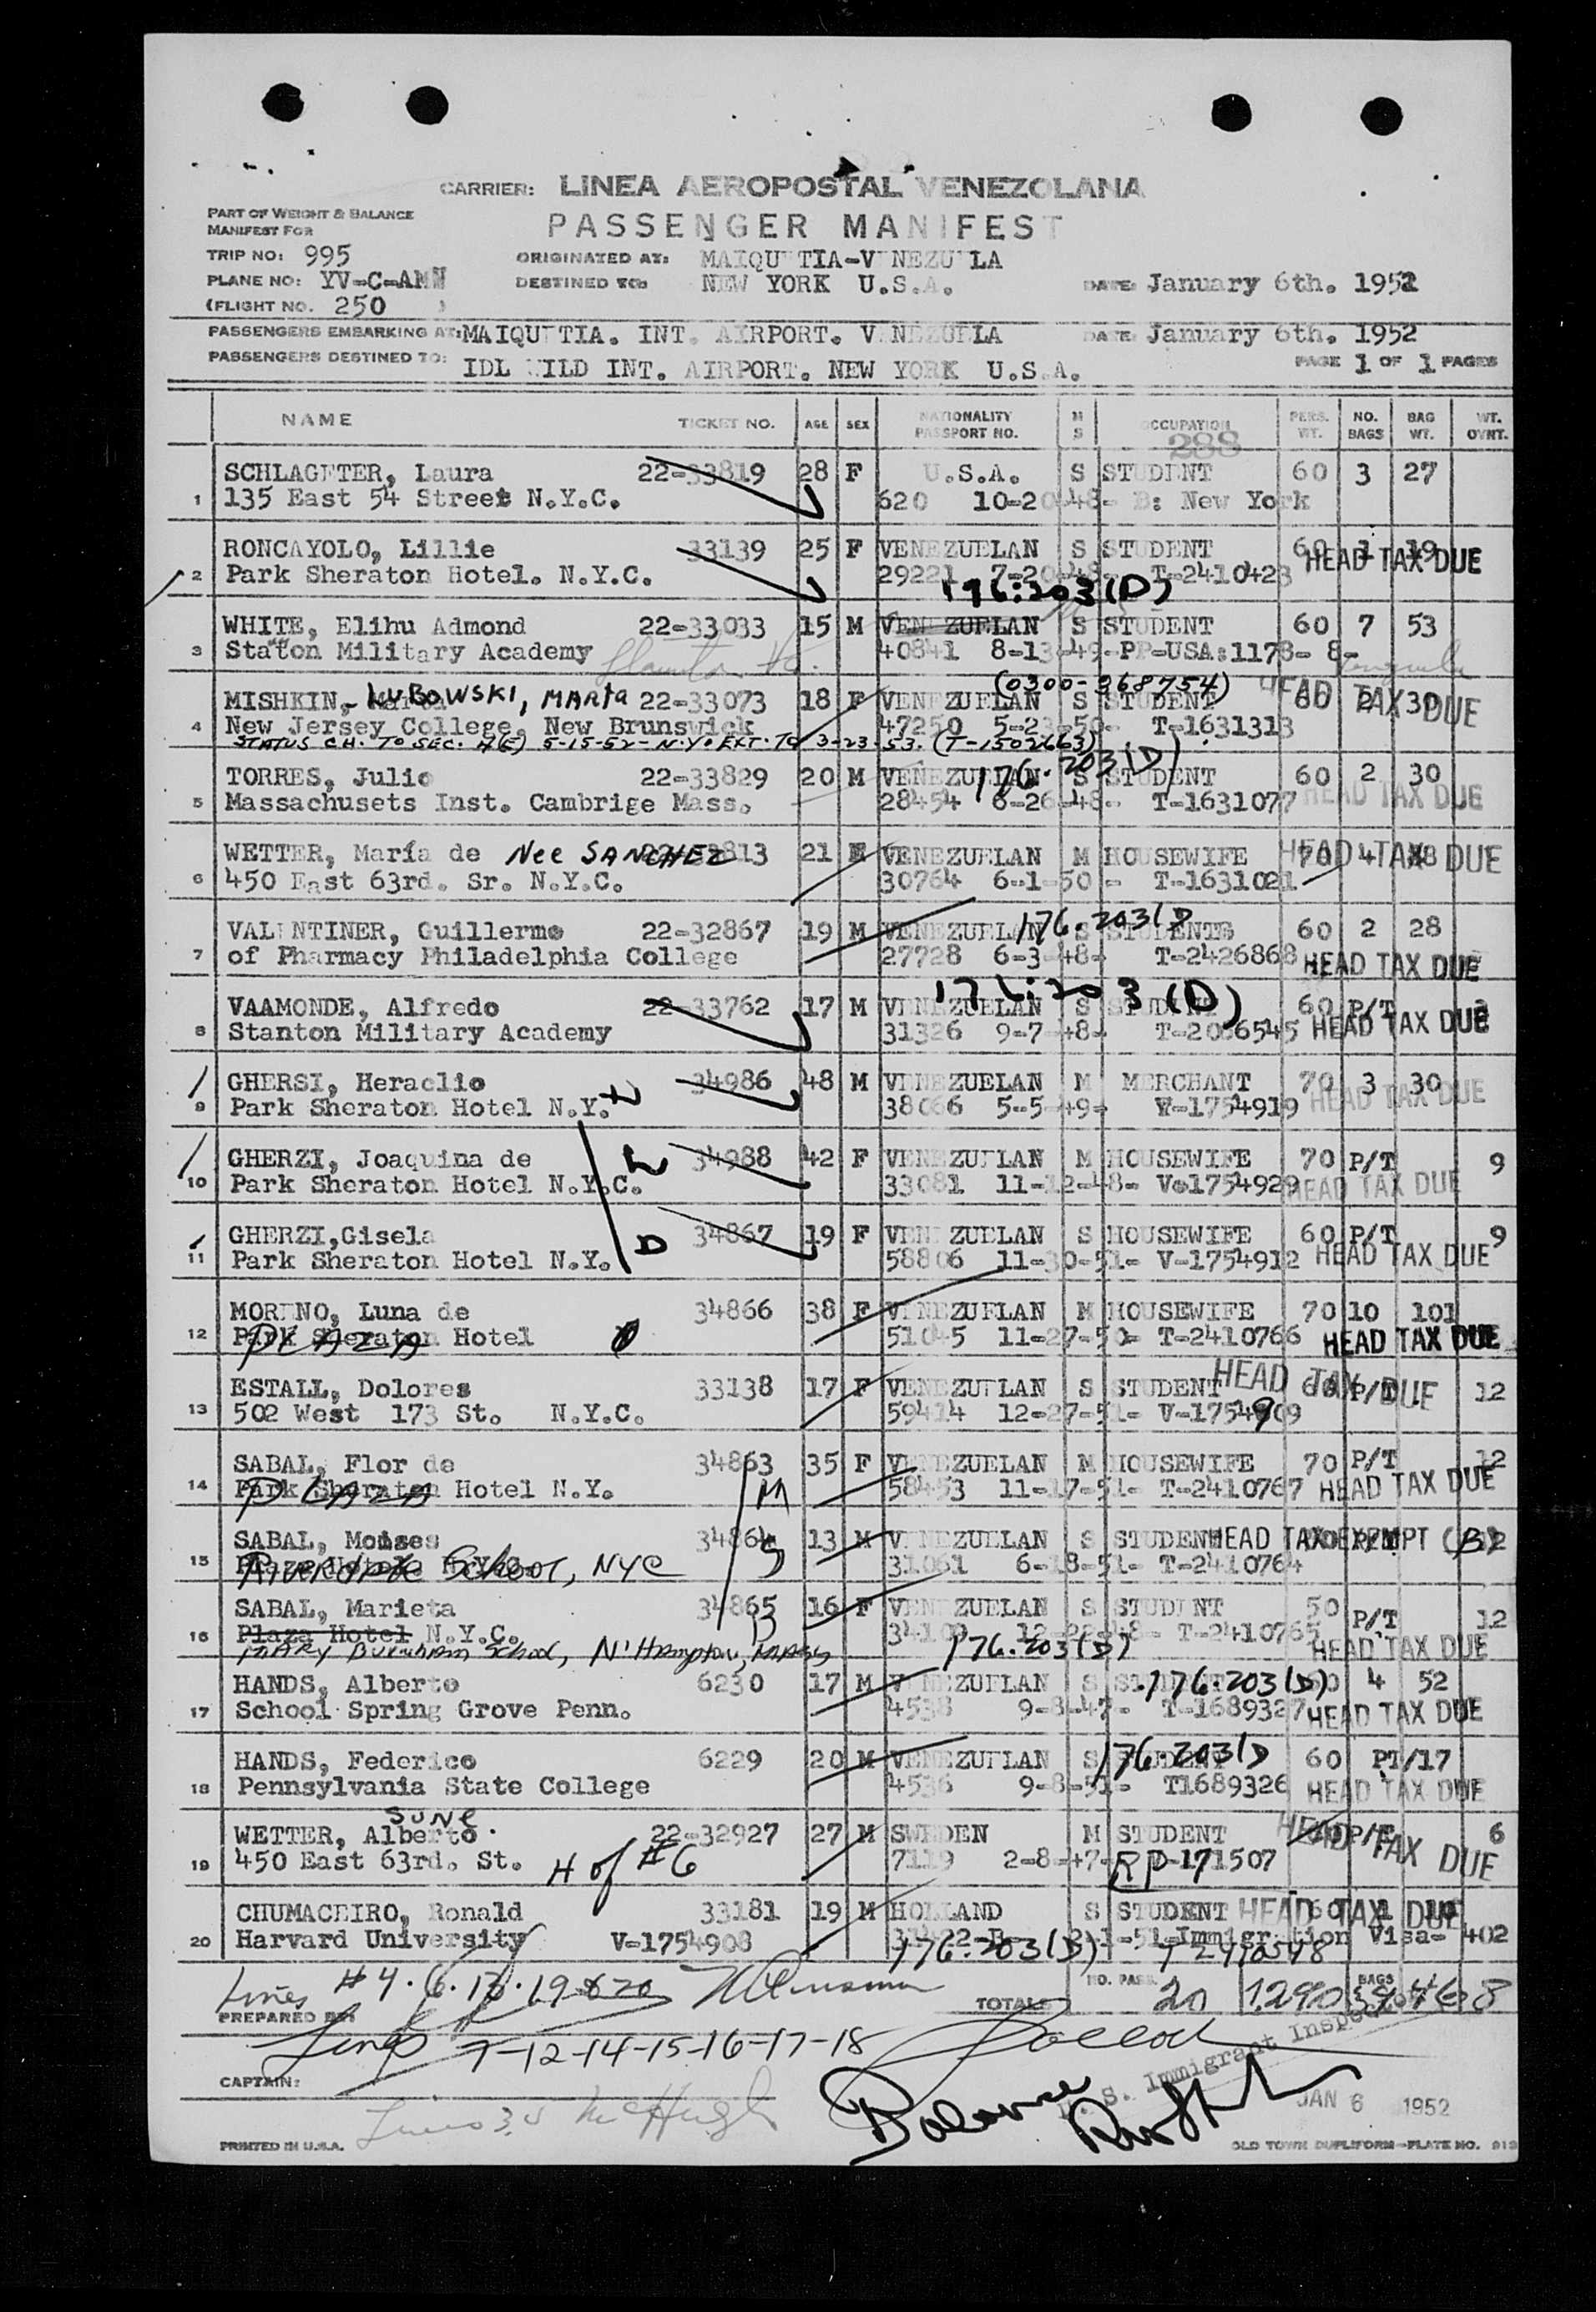 CARRIER: LINEA AEROPOSTAL VENEZOLANA
PART OF WEIGHT & BALANCE
MANIFEST FOR
PASSENGER MANIFEST
TRIP NO: 995 ORIGINATED AT: MAIQUETIA-VENEZUELA
PLANE NO: YV-C-AMN DESTINED TO: NEW YORK U.S.A. DATE: January 6th. 1952
(FLIGHT NO. 250 )
PASSENGERS EMBARKING AT: MAIQUETIA. INT. AIRPORT. VENEZUELA DATE: January 6th. 1952
PASSENGERS DESTINED TO: IDLEWILD INT. AIRPORT. NEW YORK U.S.A. PAGE 1 OF 1 PAGES
NAME TICKET NO. AGE SEX NATIONALITY PASSPORT NO. M S OCCUPATION PERS. WT. NO. BAGS BAG WT. WT. OVNT.
288
SCHLAGETER, Laura 22-33819 28 F U.S.A. S STUDENT 60 3 27
1 135 East 54 Street N.Y.C. 620 10-20-48- B: New York
RONCAYOLO, Lillie 33139 25 F VENEZUELAN S STUDENT 60 1 19 HEAD TAX DUE
2 Park Sheraton Hotel. N.Y.C. 29221 7-20-48- T-2410423
176.203(D)
WHITE, Elihu Admond 22-33033 15 M VENEZUELAN S STUDENT 60 7 53
3 Staton Military Academy 40841 8-13-49-PP-USA:1178- 8-
(0300-368754)
MISHKIN, LUBOWSKI, MARTA 22-33073 18 F VENEZUELAN S STUDENT 60 2 30 HEAD TAX DUE
4 New Jersey College, New Brunswick 47250 5-23-50- T-1631313
STATUS CH. TO SEC. 4(E) 5-15-52-N.Y. EXT. TO 3-23-53. (T-1502663)
176.203(D)
TORRES, Julio 22-33829 20 M VENEZUELAN S STUDENT 60 2 30
5 Massachusets Inst. Cambrige Mass. 28454 6-26-48- T-1631077 HEAD TAX DUE
WETTER, María de Nee SANCHEZ 21 F VENEZUELAN M HOUSEWIFE 70 4 HEAD TAX DUE
6 450 East 63rd. Sr. N.Y.C. 30764 6-1-50- T-1631021
176.203(D
VALENTINER, Guillermo 22-32867 19 M VENEZUELAN S STUDENTS 60 2 28
7 of Pharmacy Philadelphia College 27728 6-3-48- T-2426868 HEAD TAX DUE
176.203(D)
VAAMONDE, Alfredo 22-33762 17 M VENEZUELAN S STUDENT 60 P/T
8 Stanton Military Academy 31326 9-7-48- T-2036545 HEAD TAX DUE
GHERSI, Heraclio 34986 48 M VENEZUELAN M MERCHANT 70 3 30
9 Park Sheraton Hotel N.Y. 38066 5-5-49- V-1754919 HEAD TAX DUE
GHERZI, Joaquina de 34988 42 F VENEZUELAN M HOUSEWIFE 70 P/T 9
10 Park Sheraton Hotel N.Y.C. 33081 11-12-48- V-1754929 HEAD TAX DUE
GHERZI,Gisela D 34867 19 F VENEZUELAN S HOUSEWIFE 60 P/T 9
11 Park Sheraton Hotel N.Y. 58806 11-30-51- V-1754912 HEAD TAX DUE
MORENO, Luna de 34866 38 F VENEZUELAN M HOUSEWIFE 70 10 101
12 Park Sheraton Hotel PLAZA 51045 11-27-50- T-2410766 HEAD TAX DUE
ESTALL, Dolores 33138 17 F VENEZUELAN S STUDENT 60 P/T 12 HEAD TAX DUE
13 502 West 173 St. N.Y.C. 59414 12-27-51- V-1754909
SABAL, Flor de 34863 35 F VENEZUELAN M HOUSEWIFE 70 P/T 12
14 Park Sheraton Hotel N.Y. PLAZA M 58453 11-17-51- T-2410767 HEAD TAX DUE
SABAL, Moises 34864 S 13 M VENEZUELAN S STUDENT HEAD TAX EXEMPT (B) 12
15 Riverdale School, NYC 31061 6-18-51- T-2410764
SABAL, Marieta 34865 D 16 F VENEZUELAN S STUDENT 50 P/T 12
16 Plaza Hotel N.Y.C. T-2410765 HEAD TAX DUE
MARY Burnham School, N'Hampton, MASS 176.203(D)
HANDS, Alberto 6230 17 M VENEZUELAN S 176.203(D) 4 52
17 School Spring Grove Penn. 4538 9-8-47- T-1689327 HEAD TAX DUE
HANDS, Federico 6229 20 M VENEZUELAN S 176.203(D 60 PT/17
18 Pennsylvania State College 4536 9-8-51- T1689326 HEAD TAX DUE
SUNE
WETTER, Alberto. 22-32927 27 M SWEDEN M STUDENT P/T 6 HEAD TAX DUE
19 450 East 63rd. St. H of #6 7119 2-8-47- RP-171507
CHUMACEIRO, Ronald 33181 19 M HOLLAND S STUDENT 60 1 HEAD TAX DUE
20 Harvard University V-1754908 -51-Immigration Visa- 402
176.203(D) T-2410548
Lines #4.6.13.19&20 NO. PASS. BAGS
PREPARED BY: TOTALS 20 1290
Lines 7-12-14-15-16-17-18
CAPTAIN:
U. S. Immigrant Inspector
Lines 3, 5 McHugh
Balance
JAN 6 1952
PRINTED IN U.S.A. OLD TOWN DUPLIFORM-PLATE NO. 913